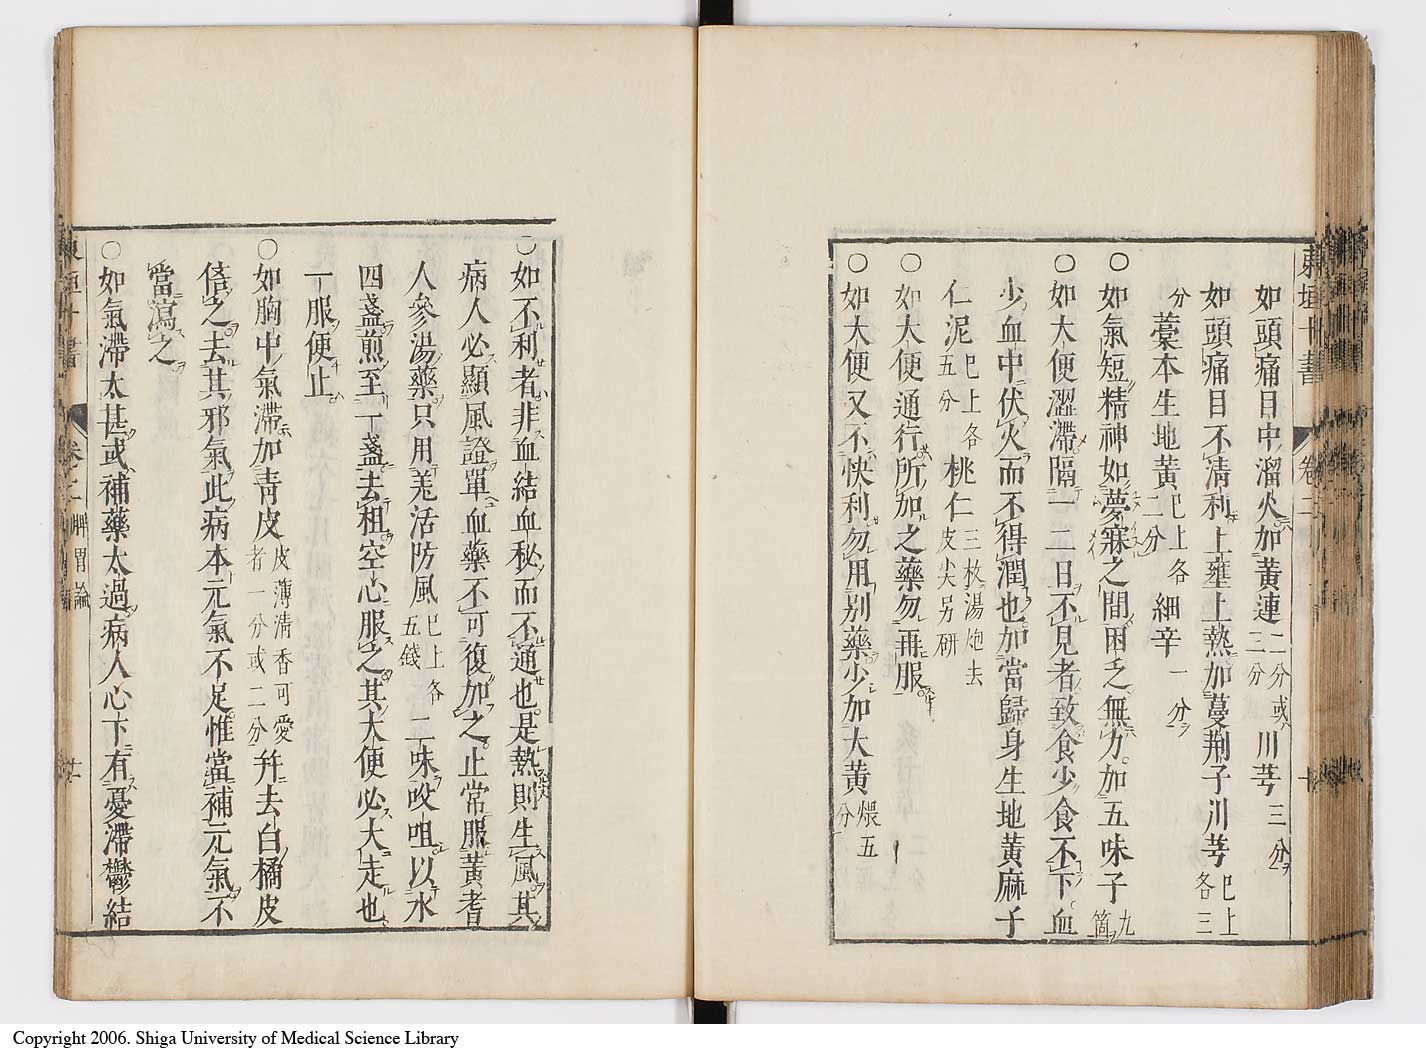 東垣十書 卷二
如頭痛目中溜火加黃連二分或三分川芎三分
如頭痛目不淸利上壅上熱加蔓荆子川芎已上各三
分藁本生地黃已上各二分細辛一分
○如氣短精神如夢寐之間困乏無力加五味子九箇
○如大便澀滯隔一二日不見者致食少食不下血
少血中伏火而不得潤也加當歸身生地黃麻子
仁泥已上各五分桃仁三枚湯炮去皮尖另研
○如大便通行所加之藥勿再服
○如大便又不快利勿用別藥少加大黃煨五分
○如不利者非血結血秘而不通也是熱則生風其
病人必顯風證單血藥不可復加之止常服黃耆
人參湯藥只用羌活防風已上各五錢二味㕮咀以水
四盞煎至一盞去租空心服之其大便必大走也
一服便止
○如胸中氣滯加靑皮皮薄淸香可愛者一分或二分幷去白橘皮
倍之去其邪氣此病本元氣不足惟當補元氣不
當瀉之
○如氣滯太甚或補藥太過病人心下有憂滯鬱結
東垣十書 卷二 脾胃論
Copyright 2006. Shiga University of Medical Science Library